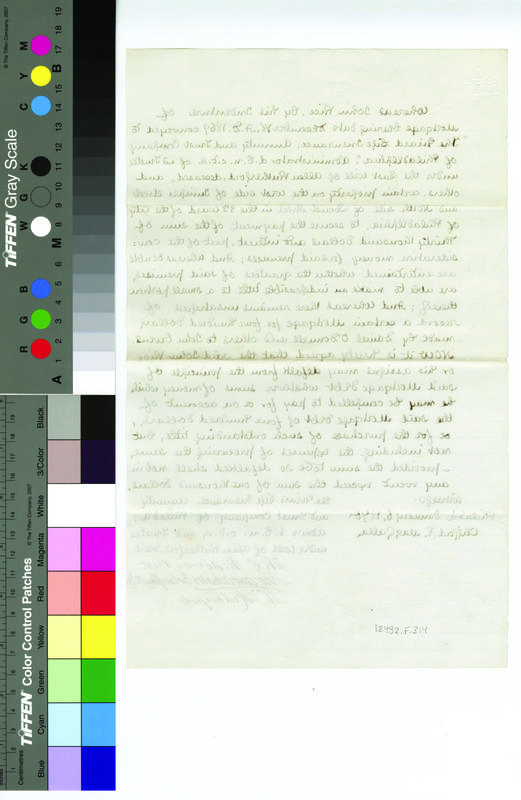 Whereas John Rice, by this Indenture of
Mortgage bearing date December A.D. 1869 conveyed to
"The Girard Life Insurance, Annuity and Trust Company
of Philadelphia" administrator d.b.n. c.t.a. of
under the last will of Allen deceased, and
others certain property on the West side of Juniper Street
and North side of Locust Street in the 8th ward of the City
of Philadelphia, to secure the payment of the sum of
Thirty thousand dollars and interest, part of the con-
sideration money for said premises: And whereas doubts
are entertained whether the grantors of said premises,
are able to make an indisputable title to a small portion
thereof; And Whereas there remains unsatisfied of
record a certain Mortgage for four hundred dollars
made by Daniel O'Donnell and others to John
Now it is hereby agreed that the said John Rice
or his assigns may defalk from the principal of
said Mortgage debt sums of money which
he may be compelled to pay for or on account of
the said Mortgage debt of four hundred dollars,
or for the purchase of such outstanding title, but
not including the expenses of procuring the same,
provided the sum to be so defalked shall not in
any event exceed the sum of one thousand dollars.
The Girard Life Insurance Annuity
and Trust Company of
12492.F.314
TIFFEN Gray Scale
© The Tiffen Company, 2007
R G B W G K C Y M
A 1 2 3 4 5 6 M 8 9 10 11 12 13 14 15 B 17 18 19
TIFFEN Color Control Patches
© The Tiffen Company, 2007
Centimetres
Blue Cyan Green Yellow Red Magenta White 3/Color Black